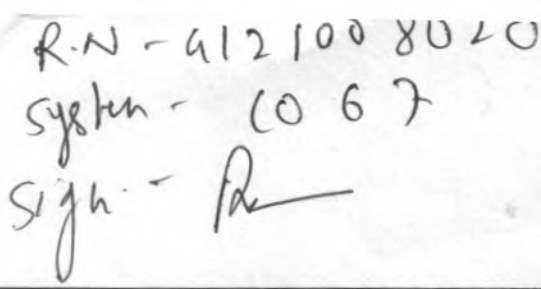 R.N - 4121008020
System - C067
Sign. -